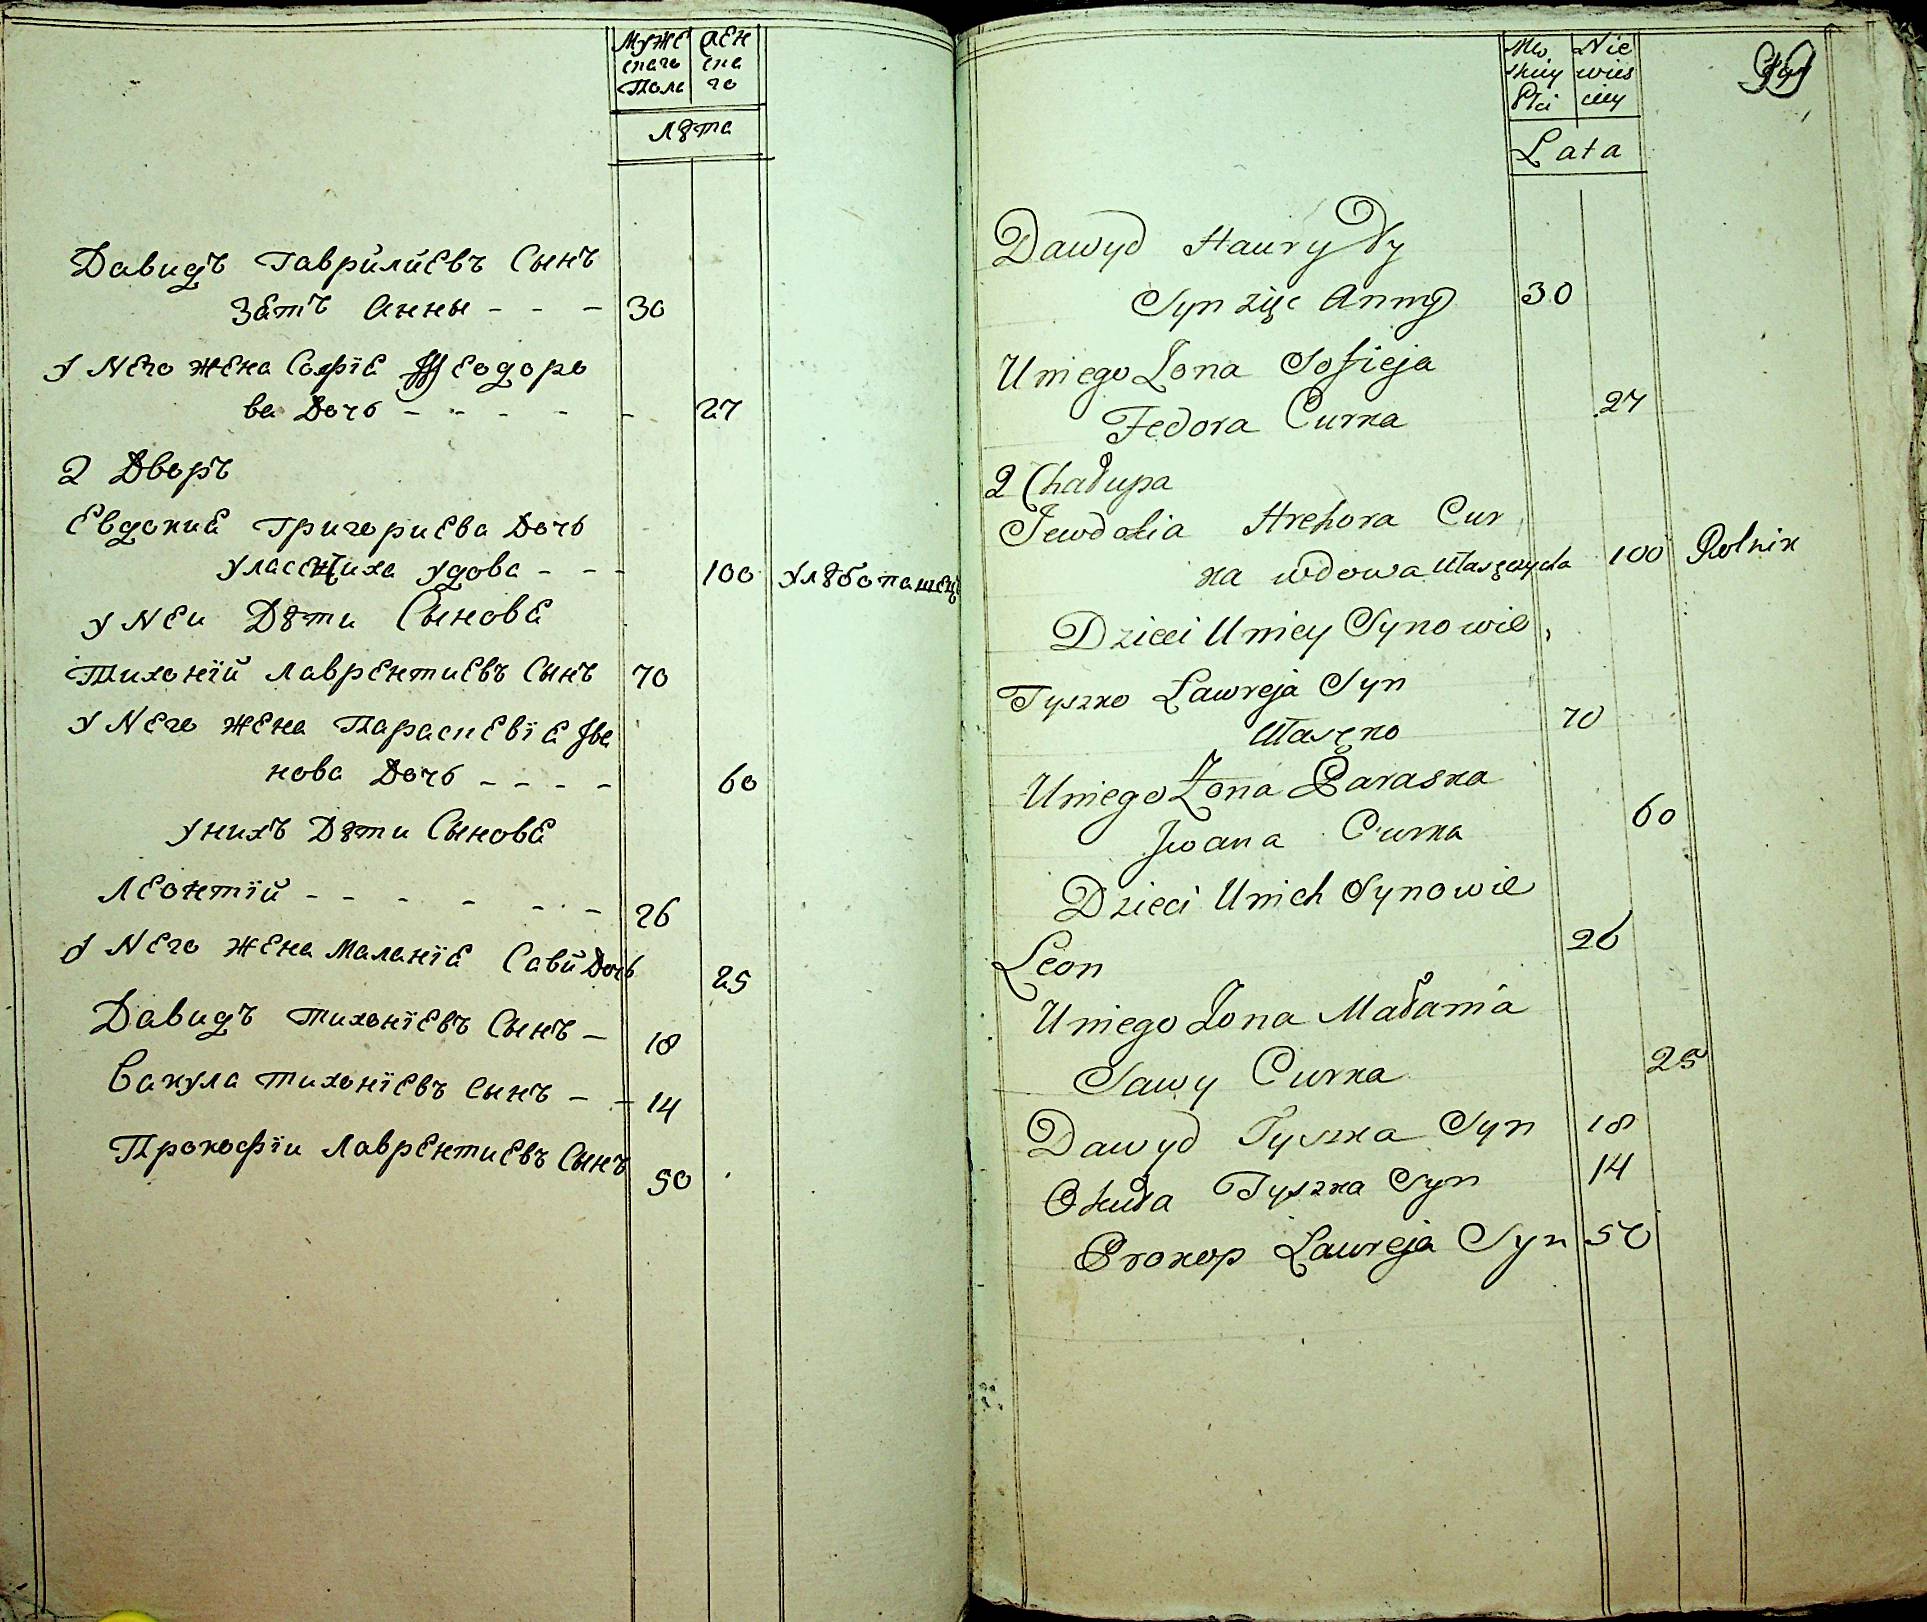 Муже жен
скаго ска
Пола го
Лѣта
Давидъ Гаврйлйевъ Сынъ
Зать Анны - - - 30
У Него жена Софїа Ѳеодоро
ва Дочь - - - - - 27
2 Дворъ
Евдокиа Григориева Дочь
Уласещиха удова - - - 100 Хлѣбопашец
У Неи Дѣти Сынова
Тихонїй Лаврентиевъ Сынъ 70
У Него жена Параскевїа Ива
нова Дочь - - - - 60
У нихъ Дѣти Сынова
Леонтїй - - - - - - 26
У Него жена Маланїа Савй Дочь 25
Давидъ Тихонїевъ Сынъ - 18
Вакула Тихонїевъ Сынъ - - 14
Прокофїи Лаврентиевъ Сынъ 50
Mę Nie
skiey wies
Płci ciey
Lata
Dawyd Hauryły
Syn zięc Anny 30
Uniego Zona Sofieja
Fedora Curka 27
2 Chałupa
Jewdokia Hrehora Cur
ka wdowa Ułasęczycha 100 Rolnik
Dzieci Uniey Synowie
Tyszko Ławreja Syn
Ułasęko 70
Uniego Żona Paraska
Jwana Curka 60
Dzieci Unich Synowie
Leon 26
Uniego Zona Małania
Sawy Curka 25
Dawyd Tyszka Syn 18
Okuła Tyszka Syn 14
Prokop Ławreja Syn 50